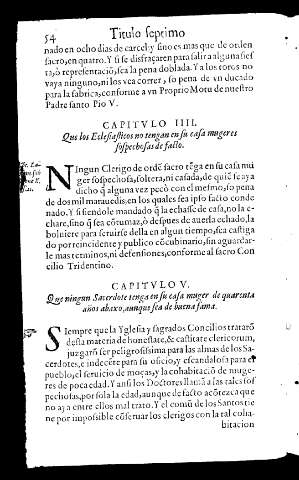 54 Titulo septimo
nado en ocho dias de carcel: y si no es mas que de orden
sacro, en quatro. Y si se disfraçaren para salir a alguna fies
ta, ò representaciõ, sea la pena doblada. Y a los toros no
vaya ninguno, ni los vea correr, so pena de vn ducado
para la fabrica, conforme a vn Proprio Motu de nuestro
Padre santo Pio V.
CAPITVLO IIII.
Que los Eclesiasticos no tengan en su casa mugeres
sospechosas de facto.
NIngun Clerigo de ordẽ sacro tẽga en su casa mu
ger sospechosa, soltera, ni casada, de quiẽ se aya
dicho q̃ alguna vez pecò con el mesmo, so pena
de dos mil marauedis, en los quales sea ipso facto conde
nado. Y si siendole mandado q̃ la echasse de casa, no la e-
chare, sino q̃ sea cõtumaz, ò despues de auerla echado, la
boluiere para seruirse della en algun tiempo, sea castiga
do por reincidente y publico cõcubinario, sin aguardar-
le mas terminos, ni defensiones, conforme al sacro Con
cilio Tridentino.
CAPITVLO V.
Que ningun Sacerdote tenga en su casa muger de quarenta
años abaxo, aunque sea de buena fama.
SIempre que la Yglesia y sagrados Concilios tratarõ
desta materia de honestate, & castitate clericorum,
juzgarõ ser peligrosissima para las almas de los Sa-
cerdotes, e indecẽte para su oficio, y escandalosa para el
pueblo, el seruicio de moças, y la cohabitaciõ de muge-
res de poca edad. Y ansi los Doctores llamã a las tales sos
pechosas, por sola la edad, aunque de facto acõtezca que
no aya entre ellos mal trato. Y el comũ de los Santos tie
ne por impossible cõseruar los clerigos con la tal coha-
bitacion